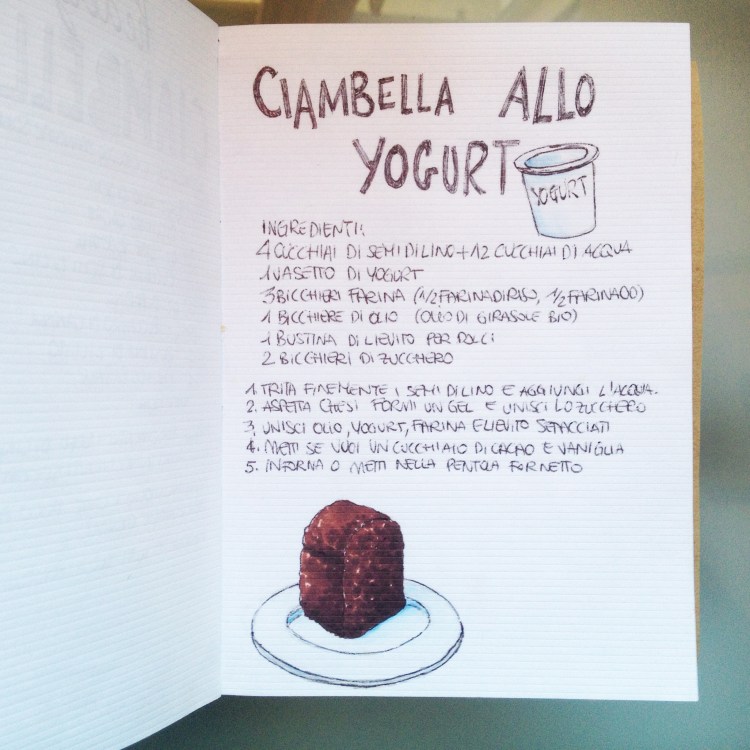 CIAMBELLA ALLO
YOGURT
YOGURT
INGREDIENTI:
4 CUCCHIAI DI SEMI DI LINO + 12 CUCCHIAI DI ACQUA
1 VASETTO DI YOGURT
3 BICCHIERI FARINA (1/2 FARINA DI RISO, 1/2 FARINA 00)
1 BICCHIERE DI OLIO (OLIO DI GIRASOLE BIO)
1 BUSTINA DI LIEVITO PER DOLCI
2 BICCHIERI DI ZUCCHERO
1. TRITA FINEMENTE I SEMI DI LINO E AGGIUNGI L'ACQUA.
2. ASPETTA CHE SI FORMI UN GEL E UNISCI LO ZUCCHERO
3. UNISCI OLIO, YOGURT, FARINA E LIEVITO SETACCIATI
4. METTI SE VUOI UN CUCCHIAIO DI CACAO E VANIGLIA
5. INFORNA O METTI NELLA PENTOLA FORNETTO